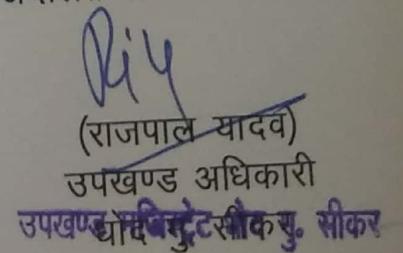 (राजपाल यादव)
उपखण्ड अधिकारी
धोद मु. सीकर
उपखण्ड सीकर